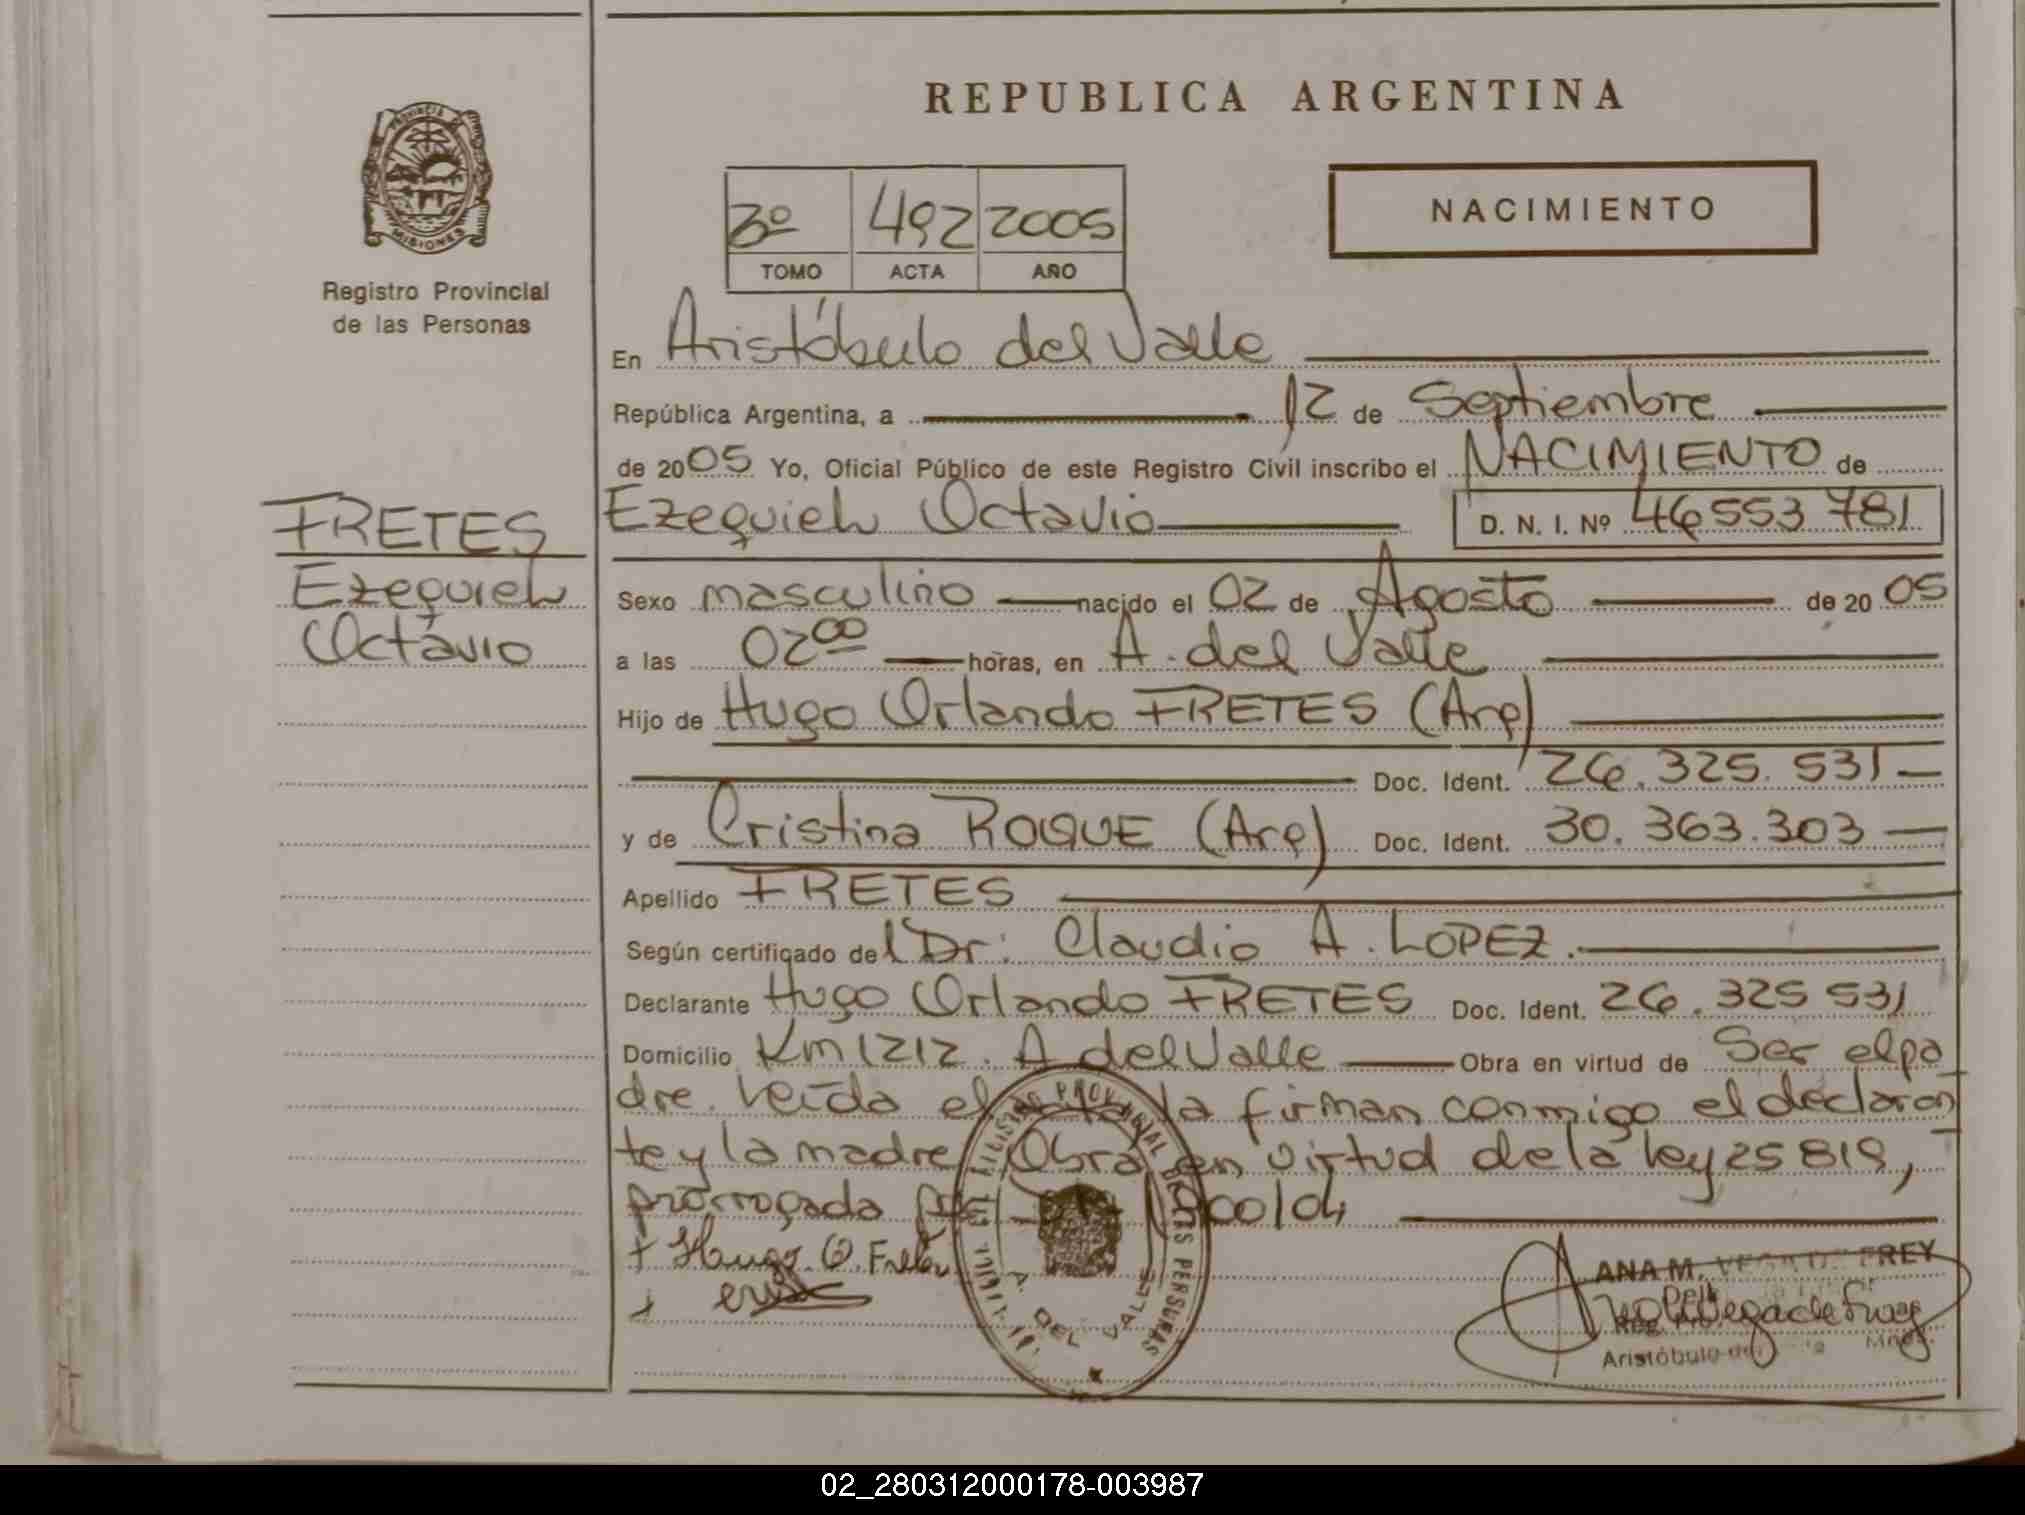 REPUBLICA ARGENTINA
PROVINCIA
MISIONES
Registro Provincial
de las Personas
3º 492 2005
TOMO ACTA AÑO
NACIMIENTO
En Aristóbulo del Valle
República Argentina, a 12 de Septiembre
de 2005 Yo, Oficial Público de este Registro Civil inscribo el NACIMIENTO de
FRETES
Ezequiel
Octavio
Ezequiel Octavio D. N. I. Nº 46553781
Sexo masculino nacido el 02 de Agosto de 2005
a las 02 00 horas, en A. del Valle
Hijo de Hugo Orlando FRETES (Arg)
Doc. Ident. 26.325.531
y de Cristina ROQUE (Arg) Doc. Ident. 30.363.303
Apellido FRETES
Según certificado del Dr: Claudio A. LOPEZ.
Declarante Hugo Orlando FRETES Doc. Ident. 26.325531
Domicilio Km 1212. A del Valle Obra en virtud de Ser el pa
dre. Leída el acta la firman conmigo el declaran
te y la madre Obra en virtud de la ley 25819,
prorrogada
Hugo. O. Fretes
A. DEL VALLE
ANA M. VEGA DE FREY
Aristóbulo del
02_280312000178-003987